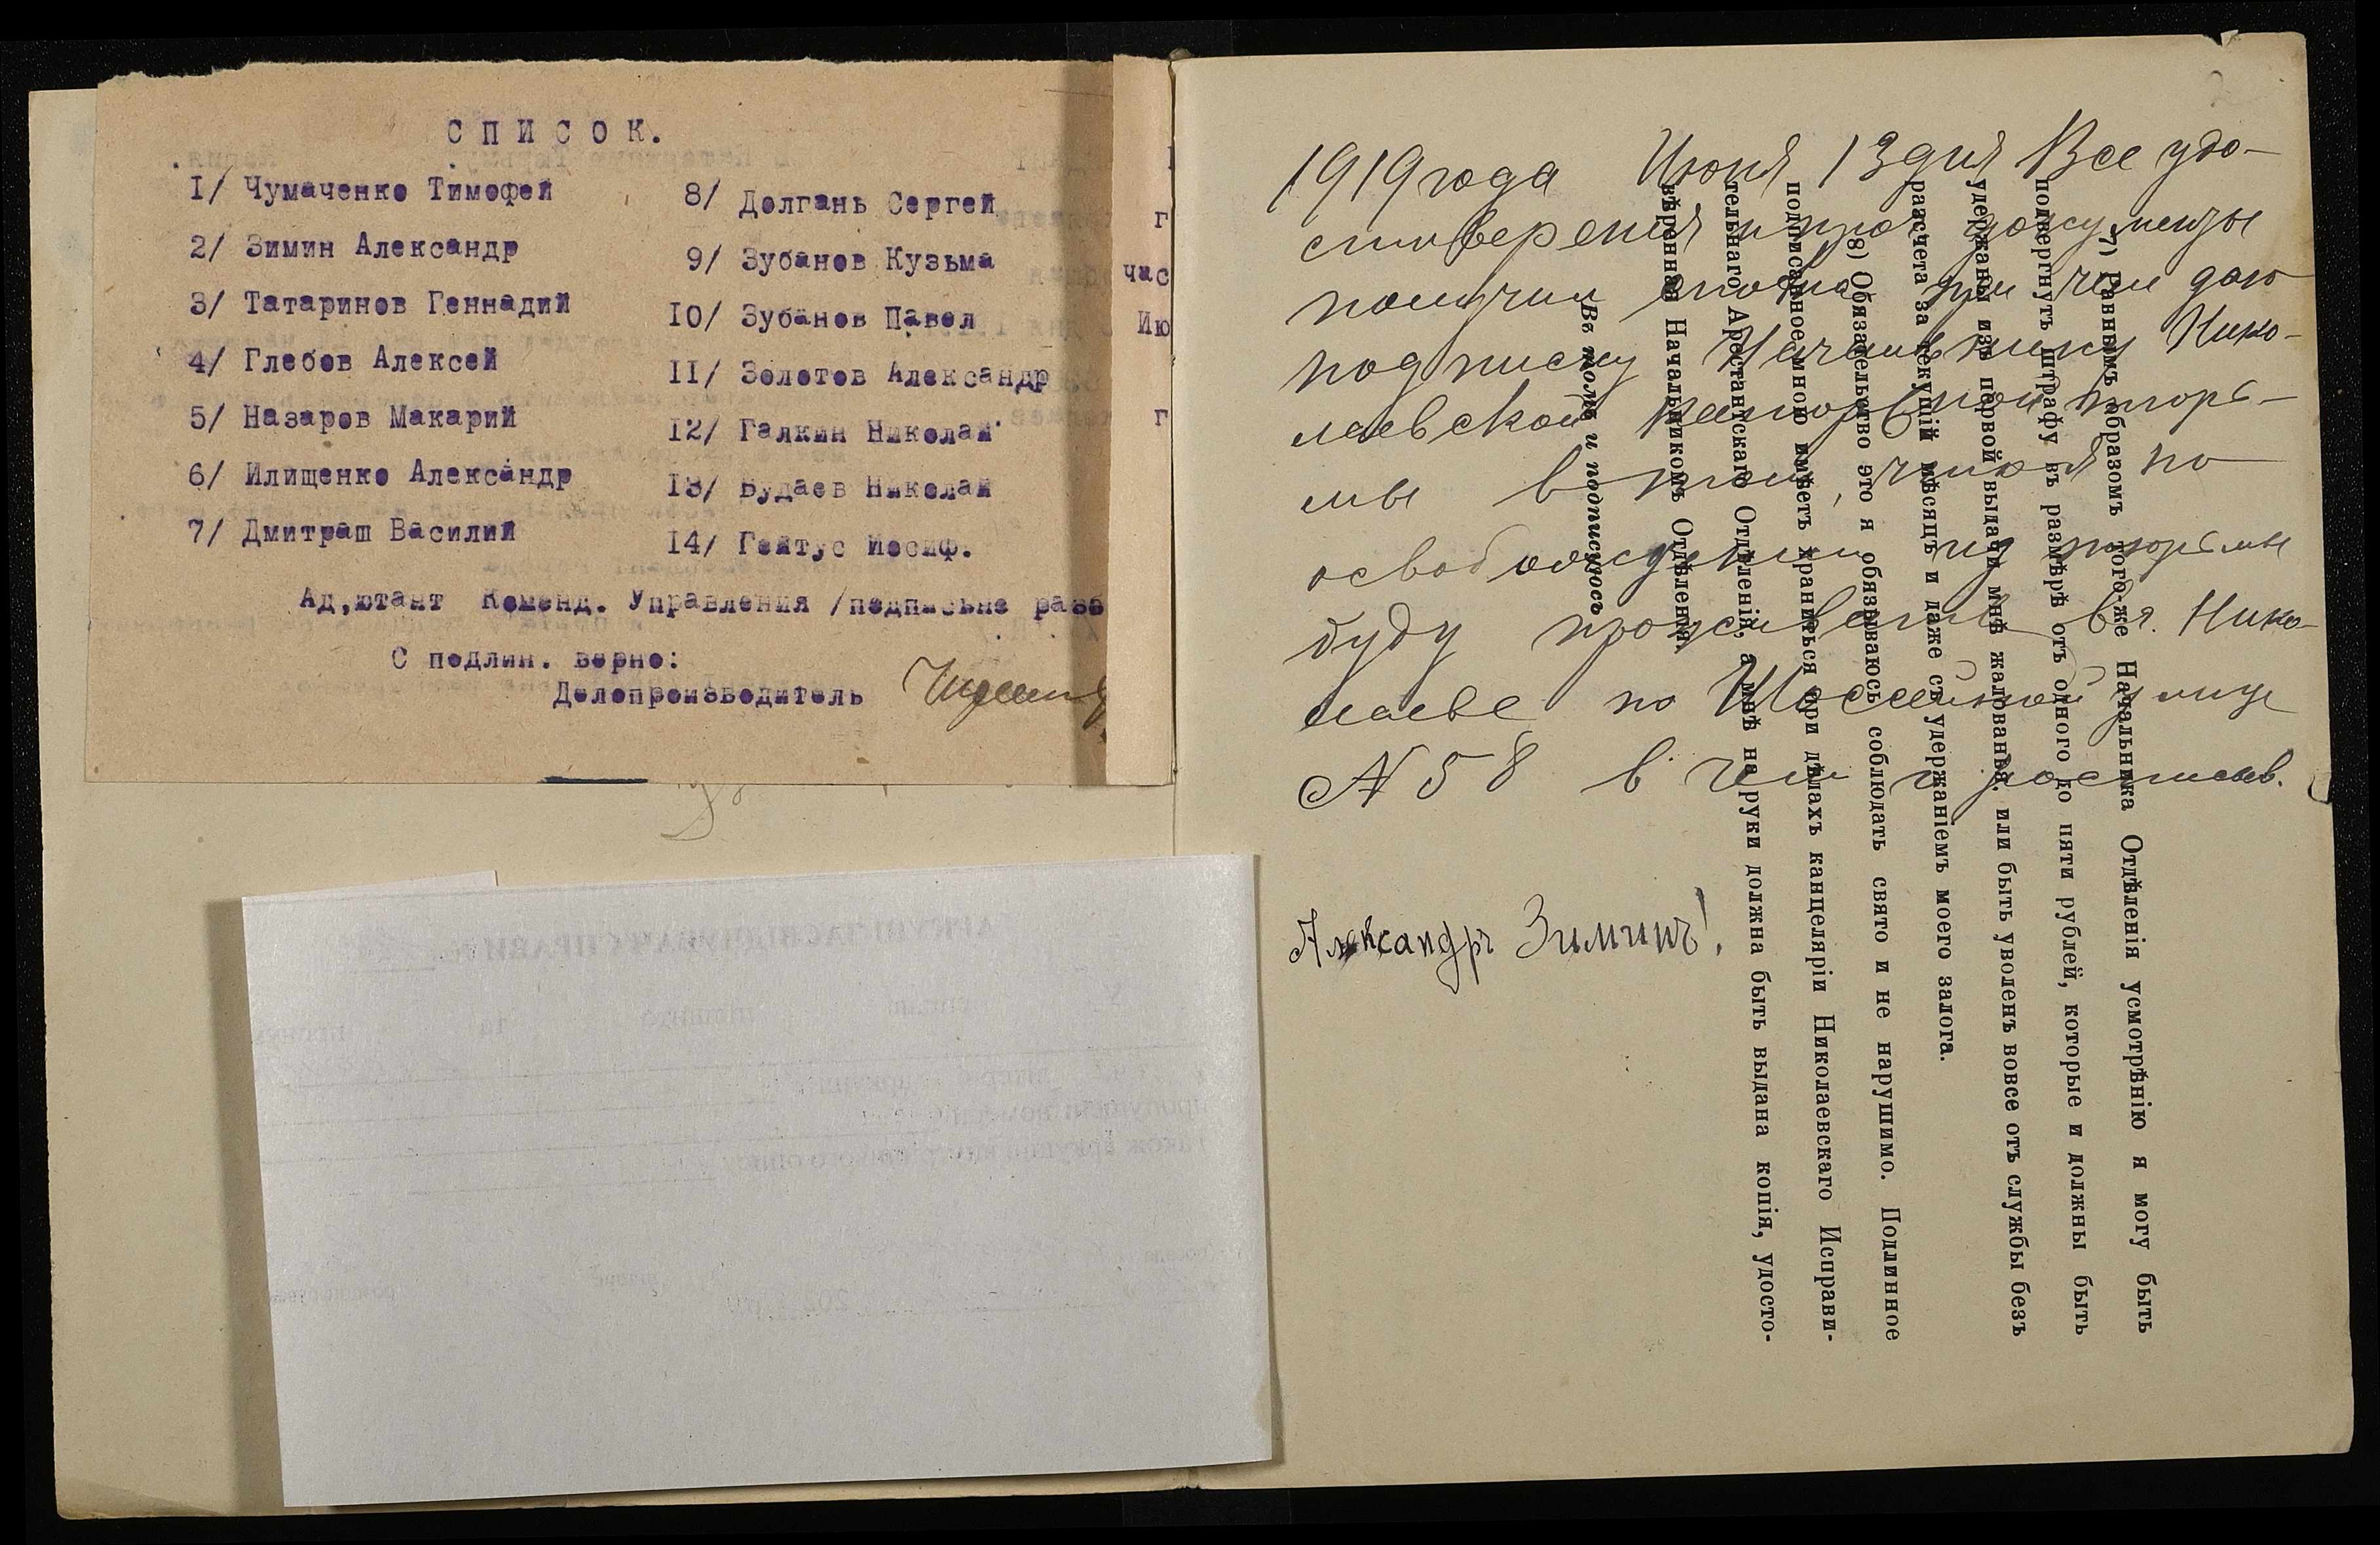 СПИСОК.
1/ Чумаченко Тимофей
2/ Зимин Александр
3/ Татаринов Геннадий
4/ Глебов Алексей
5/ Назаров Макарий
6/ Илищенко Александр
7/ Дмитраш Василий
8/ Долгань Сергей
9/ Зубанов Кузьма
10/ Зубанов Павел
11/ Золотов Александр
12/ Галкин Николай
13/ Будаев Николай
14/ Гейтус Иосиф.
Ад,ютант Коменд. Управления /подписьно разб
С подлин. верно:
Делопроизводитель
г
час
Ию
г
1919 года Июня 13 дня Все удо-
стоверения и проч документы
получил сполна при чем даю
подписку Начальнику Нико-
лаевской каторжной тюрь-
мы в том, что я по
освобождении из тюрьмы
буду проживать в г. Нико-
лаеве по Шоссейной улице
N 58 в чем и расписыв.
Александръ Зиминъ!
7) Равнымъ образомъ того-же Начальника Отдѣленія усмотрѣнію я могу быть
подвергнутъ штрафу въ размѣрѣ отъ одного до пяти рублей, которые и должны быть
удержаны изъ первой выдачи мнѣ жалованья. или быть уволенъ вовсе отъ службы безъ
разсчета за текущій мѣсяцъ и даже съ удержаніемъ моего залога.
8) Обязательство это я обязываюсь соблюдать свято и не нарушимо. Подлинное
подписанное мною имѣетъ храниться при дѣлахъ канцеляріи Николаевскаго Исправи-
тельнаго Арестантскаго Отдѣленія, а мнѣ на руки должна быть выдана копія, удосто-
вѣренная Начальникомъ Отдѣленія.
Въ томъ и подписуюсь